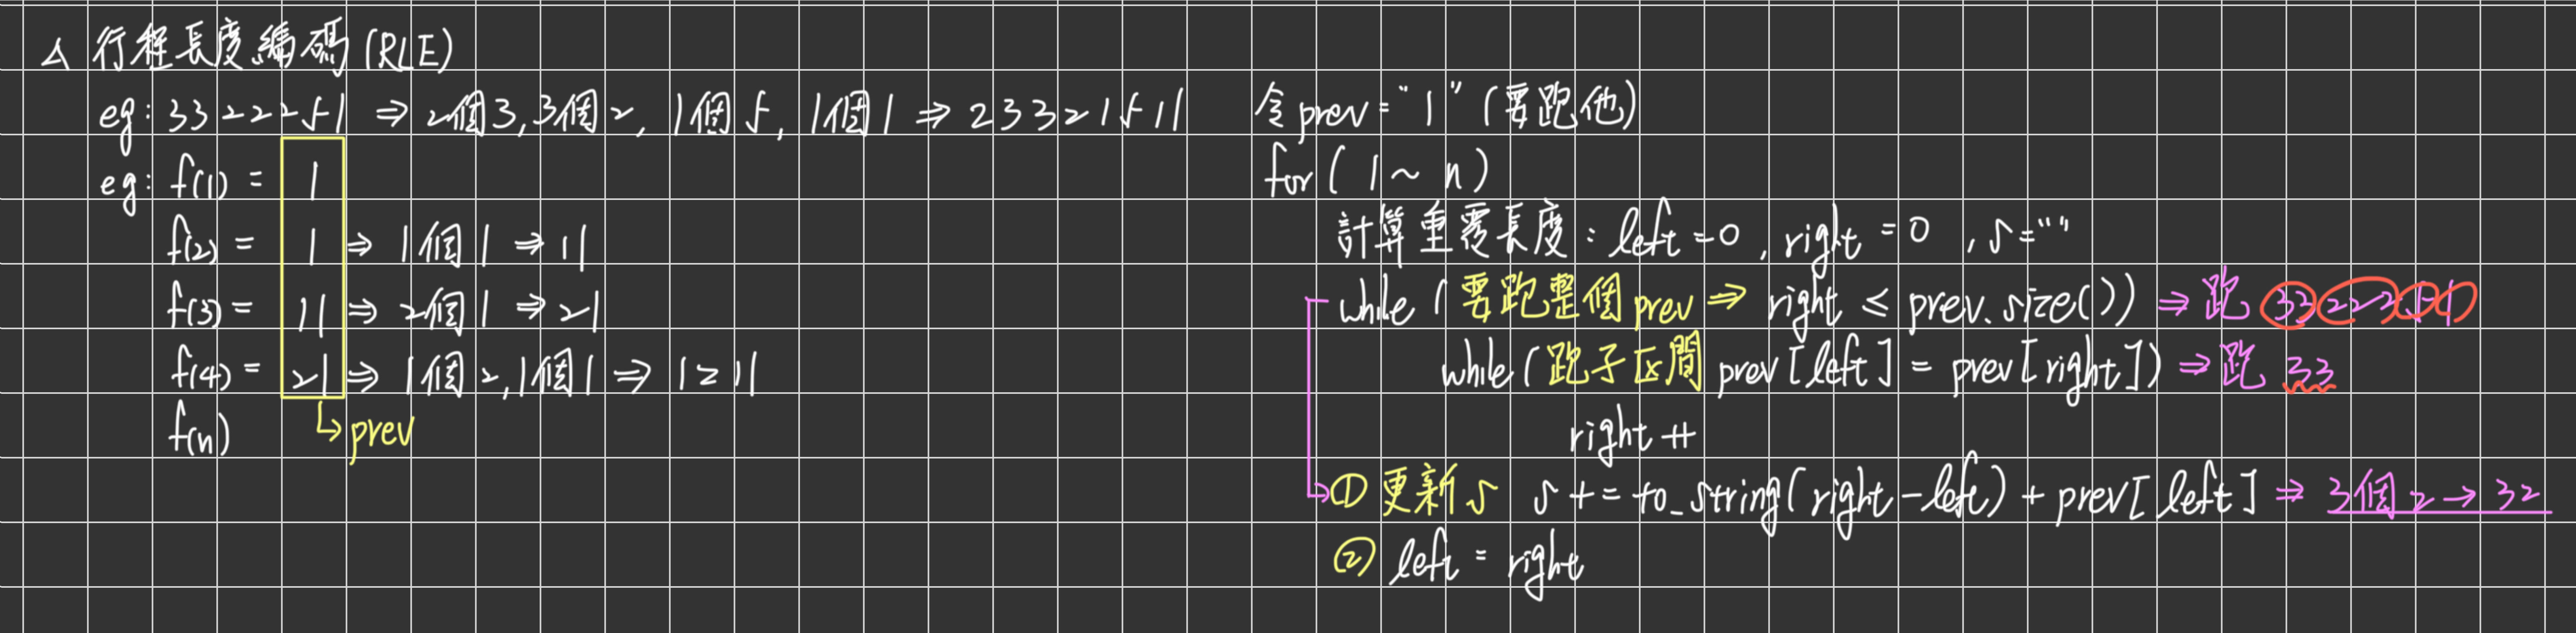 △ 行程長度編碼 (RLE)
eg: 3322251 ⇒ 2個3, 3個2, 1個5, 1個1 ⇒ 23321511
eg: f(1) = 1
f(2) = 1 ⇒ 1個1 ⇒ 11
f(3) = 11 ⇒ 2個1 ⇒ 21
f(4) = 21 ⇒ 1個2, 1個1 ⇒ 1211
f(n)
↳ prev
令 prev = "1" (要跑他)
for ( 1 ~ n )
計算重覆長度 : left = 0 , right = 0 , s = ""
while ( 要跑整個 prev ⇒ right ≤ prev.size()) ⇒ 跑 3322251
while ( 跑子区間 prev[left] = prev[right]) ⇒ 跑 33
right ++
① 更新 s s += to_string(right - left) + prev[left] ⇒ 3個2 → 32
② left = right